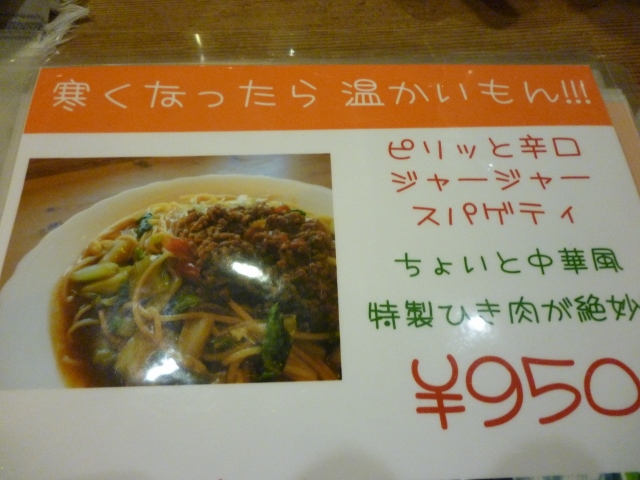 寒くなったら 温かいもん!!!
ピリッと辛口
ジャージャー
スパゲティ
ちょいと中華風
特製ひき肉が絶妙
¥950